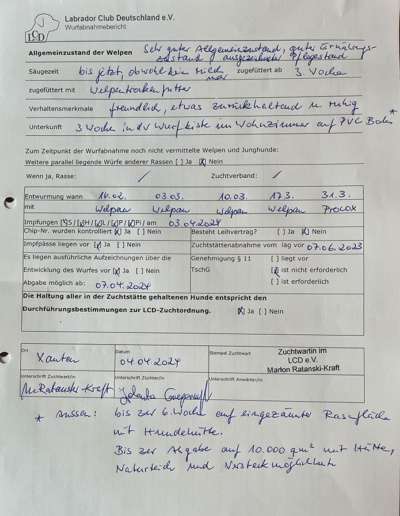 Labrador Club Deutschland e.V.
Wurfabnahmebericht
LCD
Allgemeinzustand der Welpen Sehr guter Allgemeinzustand, guter Ernährungs-
zustand, ausgezeichneter Pflegestand
Säugezeit bis jetzt, obwohl kein Milch mehr zugefüttert ab 3. Woche
zugefüttert mit Welpentrockenfutter
Verhaltensmerkmale freundlich, etwas zurückhaltend u. ruhig
Unterkunft 3 Woche in der Wurfkiste im Wohnzimmer auf PVC Boden *
Zum Zeitpunkt der Wurfabnahme noch nicht vermittelte Welpen und Junghunde:
Weitere parallel liegende Würfe anderer Rassen [ ] Ja [X] Nein
Wenn Ja, Rasse: / Zuchtverband: /
Entwurmung wann 03.03. 10.03. 17.3. 31.3.
mit Welpan Welpan Welpan Welpan Procox
Impfungen am 03.04.2024
Chip-Nr. wurden kontrolliert [X] Ja [ ] Nein Besteht Leihvertrag? [ ] Ja [X] Nein
Impfpässe liegen vor [X] Ja [ ] Nein Zuchtstättenabnahme vom lag vor 07.06.2023
Es liegen ausführliche Aufzeichnungen über die Genehmigung § 11 [ ] liegt vor
Entwicklung des Wurfes vor [X] Ja [ ] Nein TschG [X] ist nicht erforderlich
Abgabe möglich ab: 07.04.2024 [ ] ist erforderlich
Die Haltung aller in der Zuchtstätte gehaltenen Hunde entspricht den
Durchführungsbestimmungen zur LCD-Zuchtordnung. [X] Ja [ ] Nein
Ort Datum Stempel Zuchtwart
Xanten 04.04.2024 Zuchtwartin im
LCD e.V.
Marlon Ratanski-Kraft
Unterschrift Zuchtwart/in Unterschrift Züchter/in Unterschrift Anwärter/in
Ratanski-Kraft Jolanta
* Aussen: bis zur 6. Woche auf eingezäunter Rasenfläche
mit Hundehütte.
Bis zur Abgabe auf 10.000 qm² mit Hütte,
Naturteich und Versteckmöglichkeit